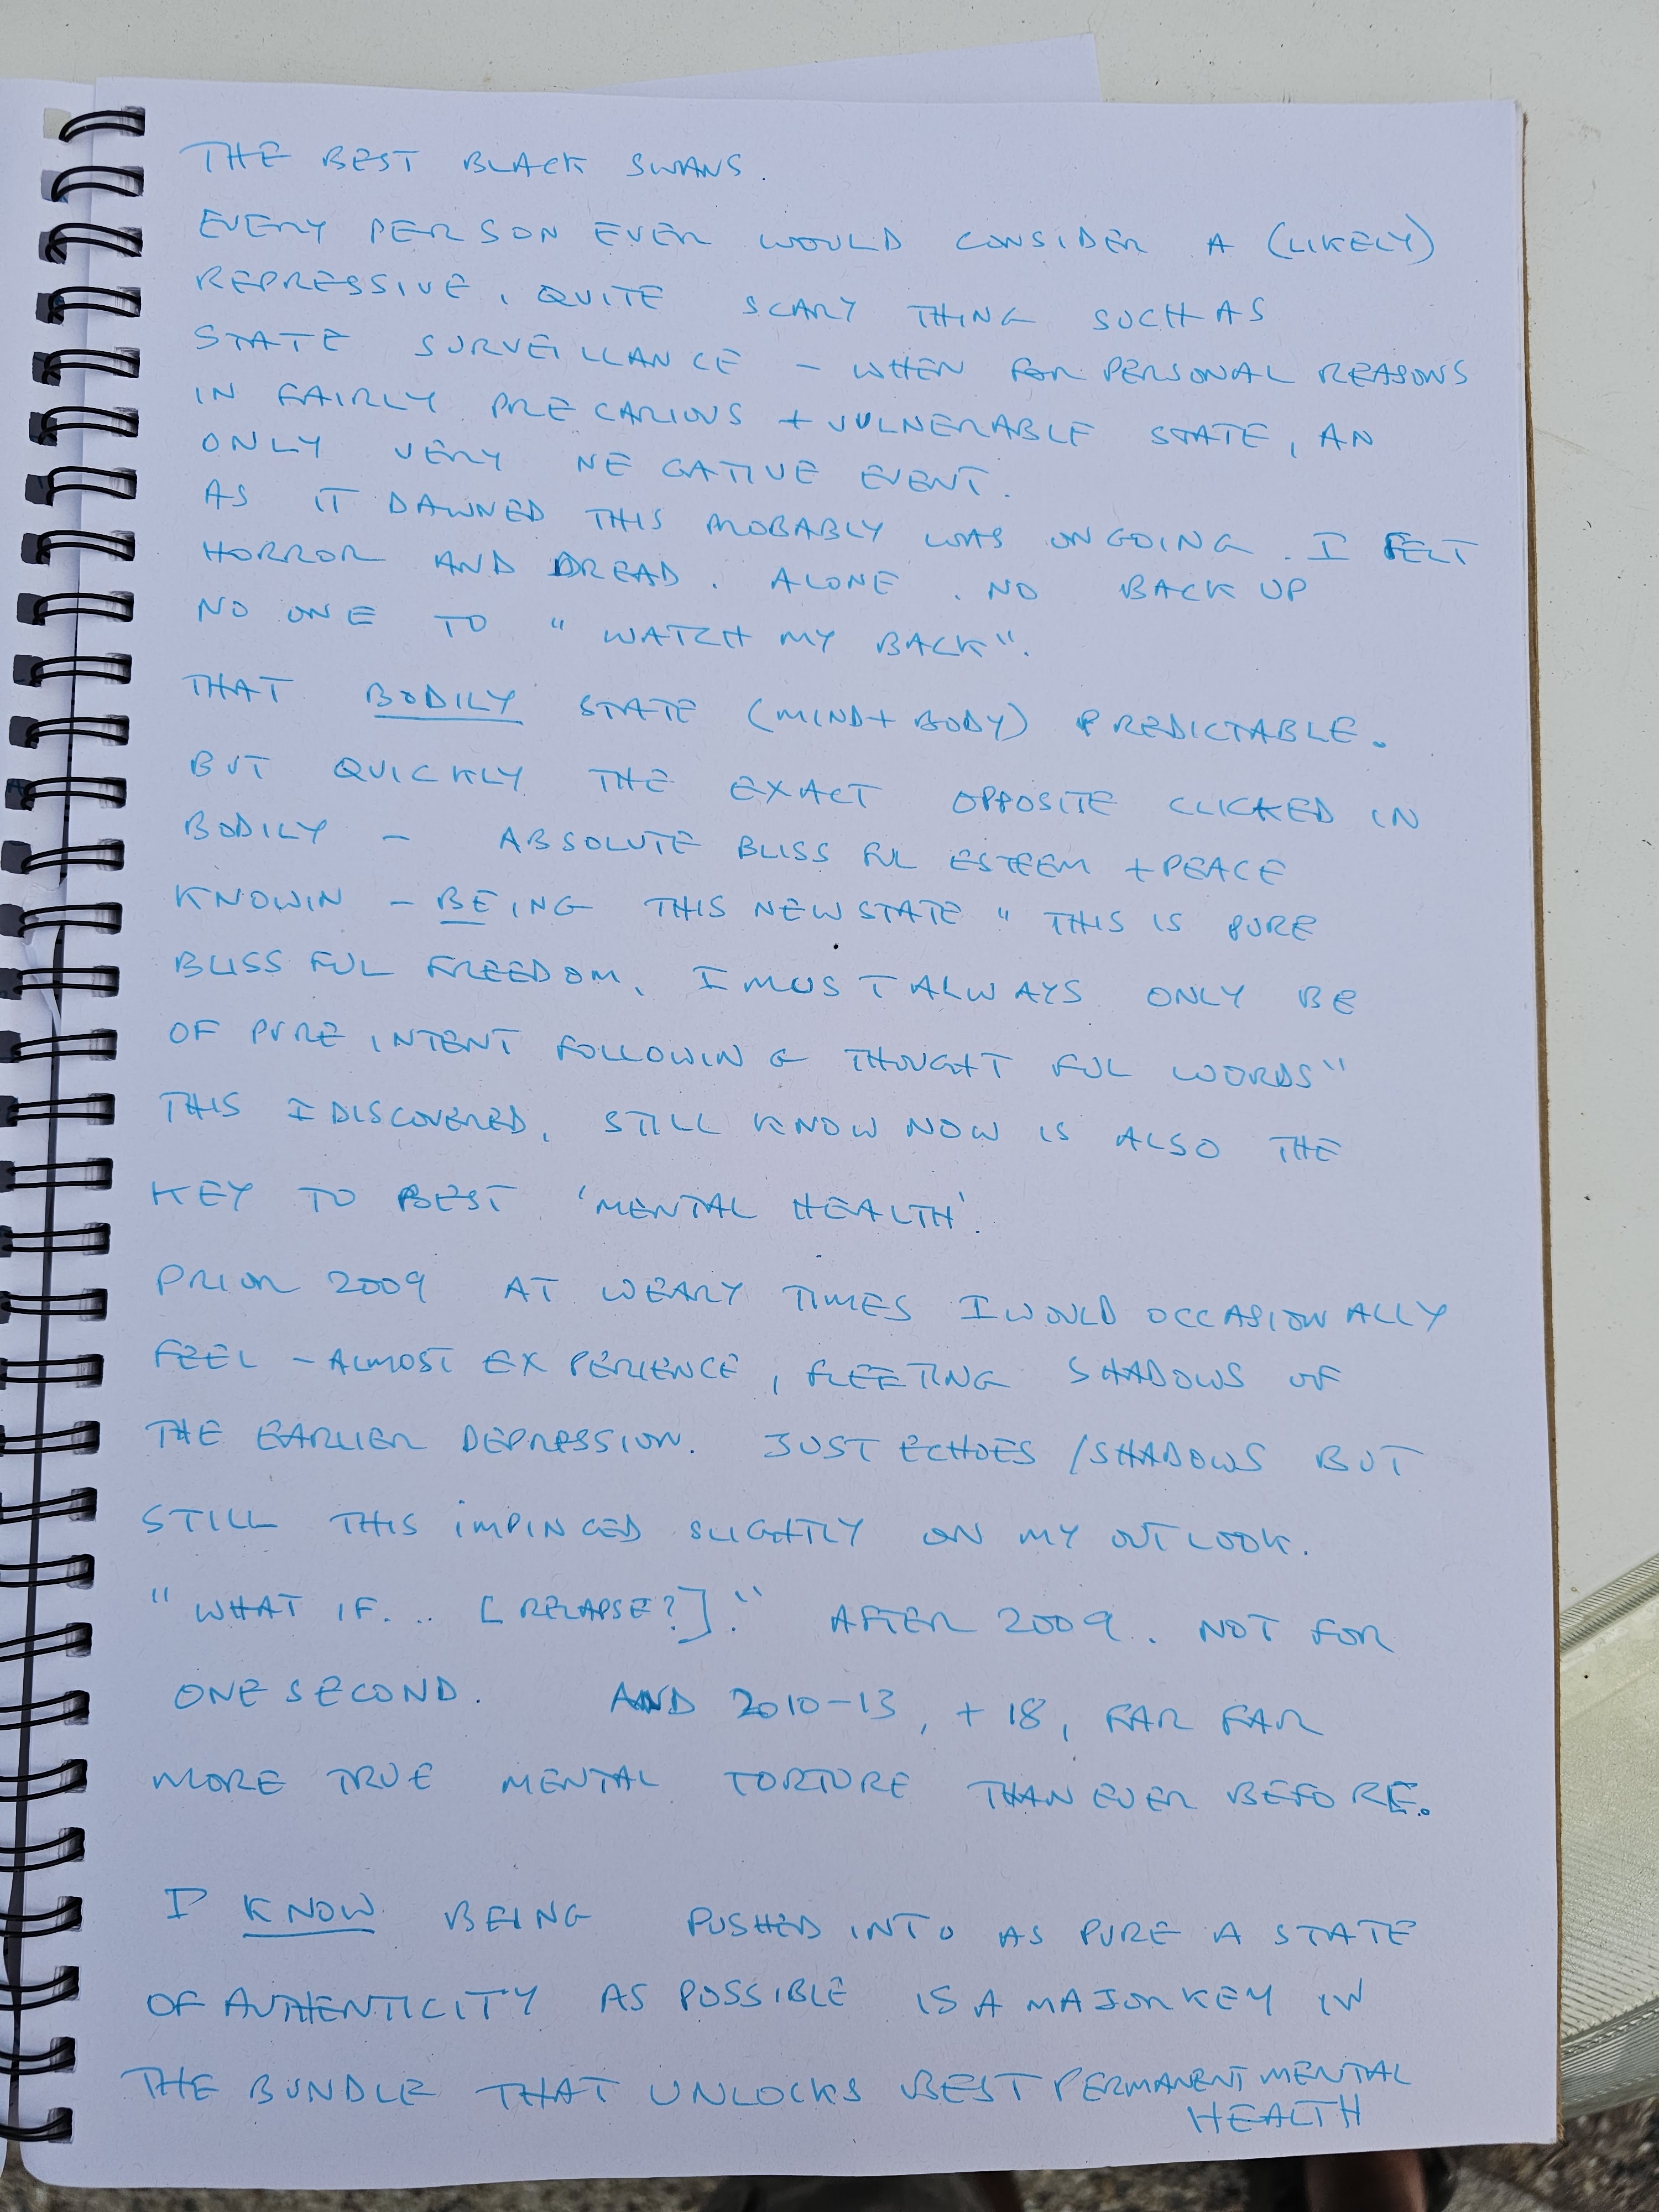 THE BEST BLACK SWANS.
EVERY PERSON EVER WOULD CONSIDER A (LIKELY)
REPRESSIVE, QUITE SCARY THING SUCH AS
STATE SURVEILLANCE – WHEN FOR PERSONAL REASONS
IN FAIRLY PRECARIOUS + VULNERABLE STATE, AN
ONLY VERY NEGATIVE EVENT.
AS IT DAWNED THIS PROBABLY WAS ONGOING. I FELT
HORROR AND DREAD. ALONE. NO BACK UP
NO ONE TO "WATCH MY BACK".
THAT BODILY STATE (MIND + BODY) PREDICTABLE.
BUT QUICKLY THE EXACT OPPOSITE CLICKED IN
BODILY – ABSOLUTE BLISSFUL ESTEEM + PEACE
KNOWIN – BEING THIS NEW STATE "THIS IS PURE
BLISSFUL FREEDOM, I MUST ALWAYS ONLY BE
OF PURE INTENT FOLLOWING THOUGHTFUL WORDS"
THIS I DISCOVERED, STILL KNOW NOW IS ALSO THE
KEY TO BEST 'MENTAL HEALTH'.
PRIOR 2009 AT WEARY TIMES I WOULD OCCASIONALLY
FEEL – ALMOST EXPERIENCE, FLEETING SHADOWS OF
THE EARLIER DEPRESSION. JUST ECHOES / SHADOWS BUT
STILL THIS IMPINGED SLIGHTLY ON MY OUTLOOK.
"WHAT IF... [RELAPSE?]." AFTER 2009. NOT FOR
ONE SECOND. AND 2010-13, + 18, FAR FAR
MORE TRUE MENTAL TORTURE THAN EVER BEFORE.
I KNOW BEING PUSHED INTO AS PURE A STATE
OF AUTHENTICITY AS POSSIBLE IS A MAJOR KEY IN
THE BUNDLE THAT UNLOCKS BEST PERMANENT MENTAL
HEALTH